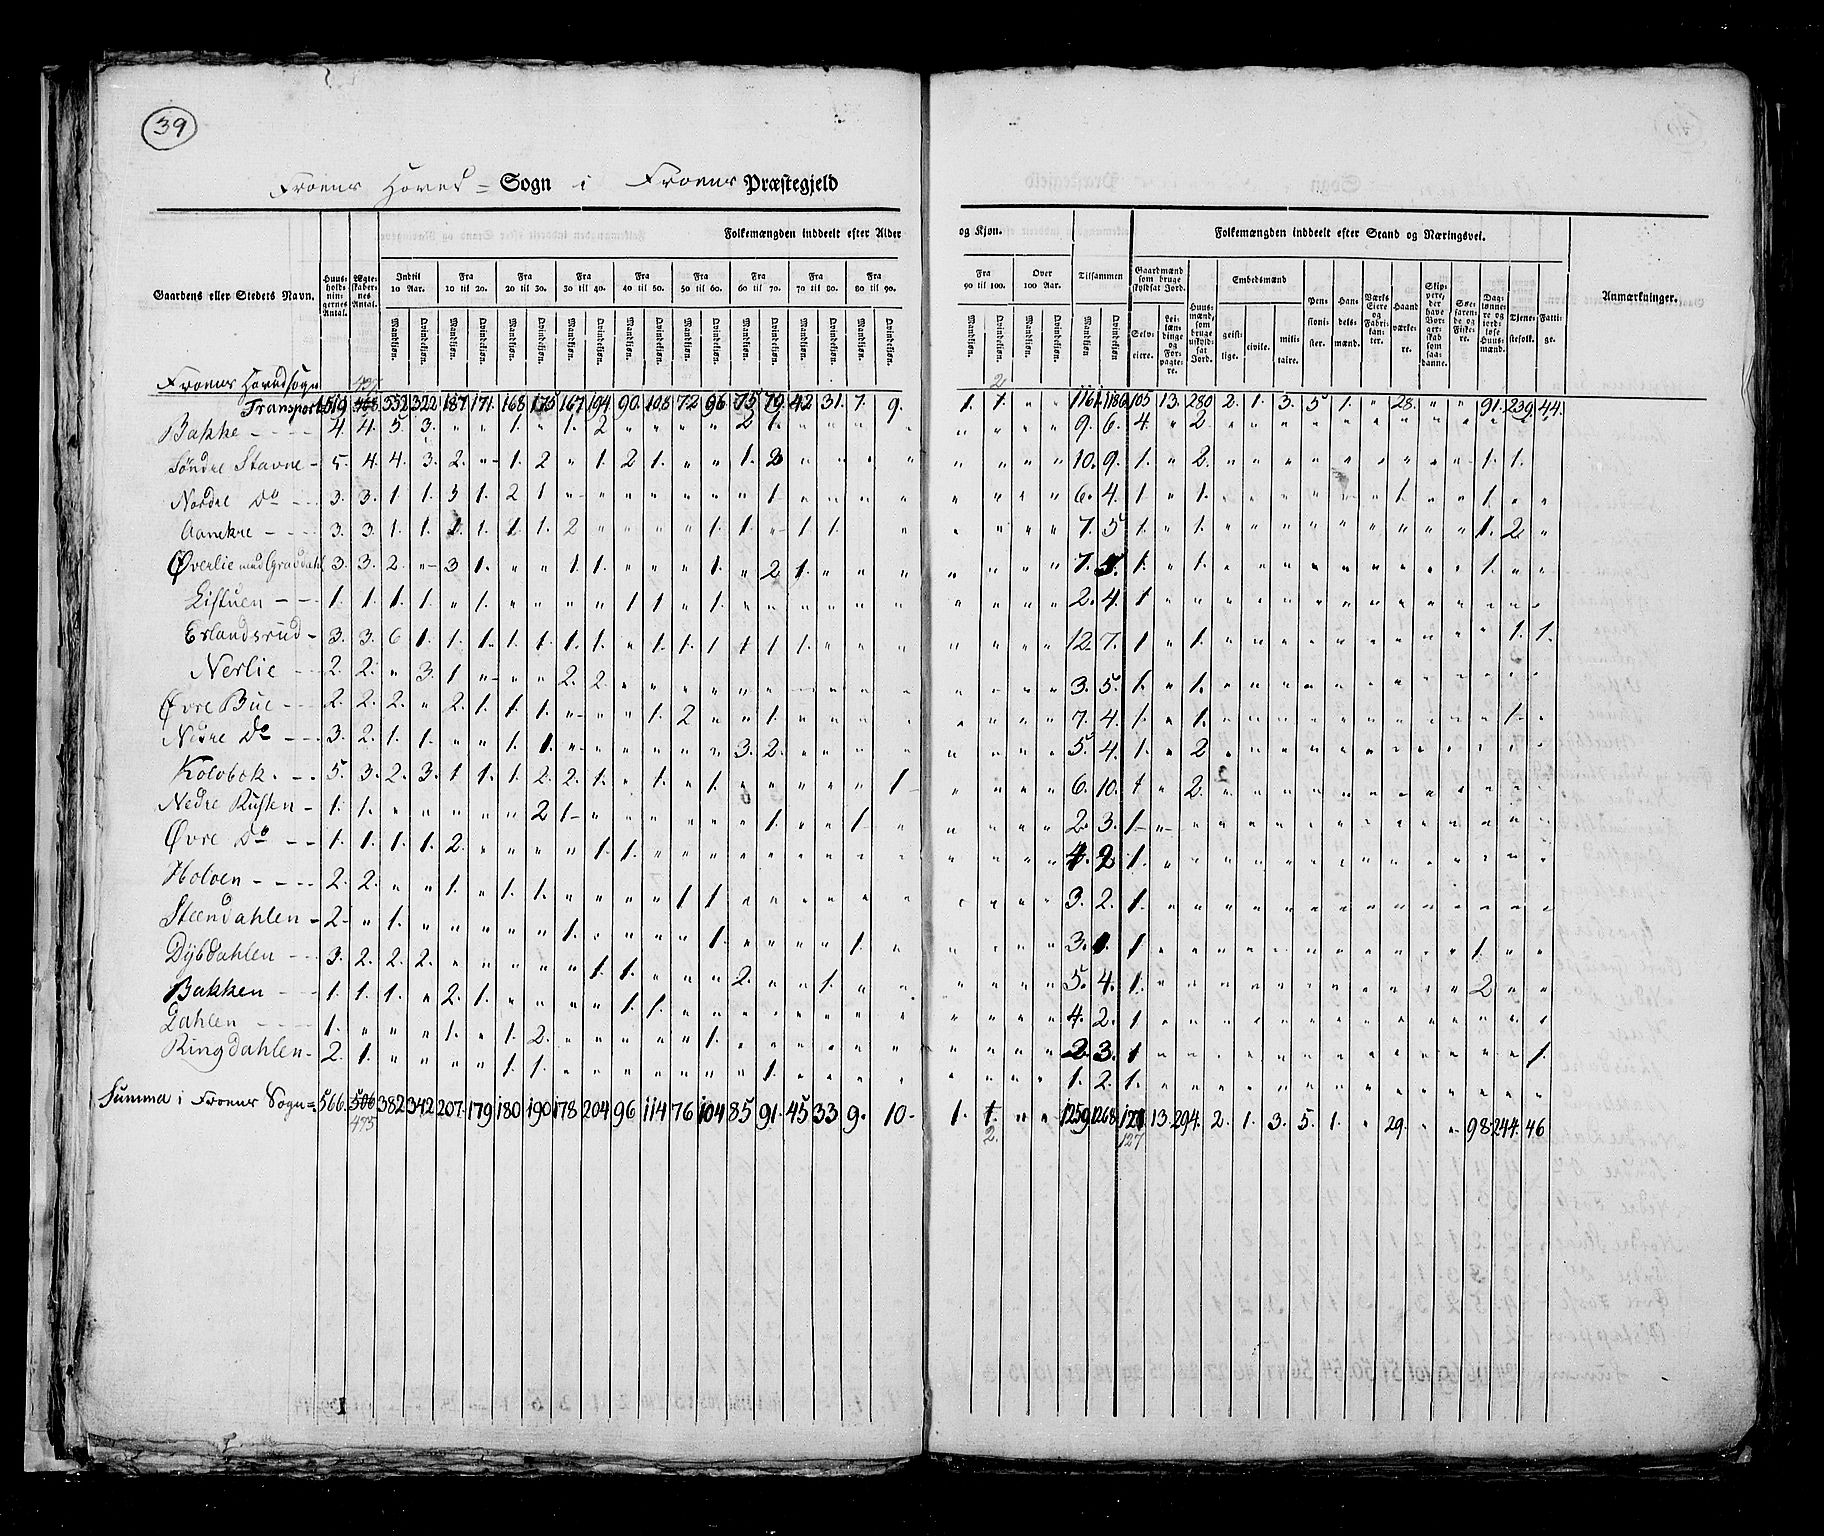 39
Froens Hoved= Sogn i Froens Præstegjeld
Folkemængden inddeelt efter Alder og Kjøn. Folkemængden inddeelt efter Stand og Næringsvei.
Gaardens eller Stedets Navn. Huus-holdnin-gernes Antal. Ægte-skaber-nes Antal. Indtil 10 Aar. Fra 10 til 20. Fra 20 til 30. Fra 30 til 40. Fra 40 til 50. Fra 50 til 60. Fra 60 til 70. Fra 70 til 80. Fra 80 til 90. Fra 90 til 100. Over 100 Aar. Tilsammen Gaardmænd som bruge skyldsat Jord. Huus-mænd, som bruge uskyld-sat Jord. Embedsmænd Pen-sioni-ster. Han-dels-mænd. Værks Eiere og Fabri-kan-ter. Haand-værke-re. Slip-pere, der have Bor-ger-skab som saa-danne. Søe-faren-de og Fiske-re. Dag-lønne-re og jord-løse Huus-mænd. Tjene-stefolk. Fatti-ge. Anmærkninger.
Mandkjøn. Qvindekjøn. Selv-eiere. Lei-læn-dinge og For-pagte-re. geist-lige. civile. mili-taire.
Froens Hovedsogn
Transport 519 468 352 322 187 171 168 175 167 194 90 108 72 96 75 79 42 31 7 9 1 1 " " 1161 1186 105 13 280 2 1 3 5 1 " 28 " " 91 239 44
Bakke 4 4 5 3 " " 1 " 1 2 " " " " 2 1 " " " " " " " " 9 6 4 " 2
Søndre Stavne 5 4 4 3 2 " 1 2 " 1 2 1 " " 1 2 " " " " " " " " 10 9 1 " 2 " " " " " " " " " 1 1
Nordre Do 3 3 1 1 3 1 2 1 " " " " " " " 1 " " " " " " " " 6 4 1 " 1 " " " " " " 1 " " 1 " "
Aanekre 3 3 1 1 1 1 1 1 2 " " " " 1 1 " 1 1 " " " " " " 7 5 1 " 1 " " " " " " " " " 1 2 "
Øverlie med Gravdahl 3 3 2 " 3 1 " " 1 1 " " " 1 " 2 1 " " " " " " " 7 5 1 " 1 " " " " " " " " " 1 " "
Listuen 1 1 1 1 " 1 " " " " 1 1 " 1 " " " " " " " " " " 2 4 1
Erlandsrud 3 3 6 1 1 1 1 1 1 1 " 1 1 1 1 1 1 " " " " " " " 12 7 1 " 1 " " " " " " " " " " 1 1
Nerlie 2 2 " 3 1 " " " 2 2 " " " " " " " " " " " " " " 3 5 1 " 1
Øvre Bue 2 2 2 " 2 1 1 1 " " " 1 2 " " 1 " " " " " " " " 7 4 1 " 1 " " " " " " " " " " 1 "
Nedre Do 3 2 1 1 " " 1 1 " " " " " " 3 2 " " " " " " " " 5 4 1 " 2
Kolobok 5 3 2 3 1 1 1 2 2 1 " 1 " 1 " " " " " 1 " " " " 6 10 1 " 2
Nedre Rusten 1 1 " " " " " 2 1 " " " " " " 1 " " 1 " " " " " 2 3 1 "
Øvre Do 1 1 1 1 2 " " " " 1 1 " " " " " " " " " " " " " 4 2 1
Holoen 2 2 " " 1 " 1 1 " " " " 1 1 " " " " " " " " " " 3 2 1
Steendahlen 2 " 1 " " " " " 1 " " " " 1 " " " " 1 " " " " " 3 1 1 " " " " " " " " " " " 1 " "
Dybdahlen 3 2 2 2 " " " " " 1 1 " " " 2 " " 1 " " " " " " 5 4 1 " " " " " " " " " " " 2 " "
Bakken 1 1 1 " 2 1 " " " " 1 1 " " " " " " " " " " " " 4 2 1
Dahlen 1 " " " 1 " 1 2 " " " " " 1 " " " " " " " " " " 2 3 1 " " " " " " " " " " " " " 1
Ringdahlen 2 1 " " " " 1 1 " " " " " " " 1 " " " " " " " " 1 2 1
Summa i Froens Sogn 566 506 382 342 207 179 180 190 178 204 96 114 76 104 85 91 45 33 9 10 1 1 " " 1259 1268 121 13 294 2 1 3 5 1 " 29 " " 98 244 46
475 2 127